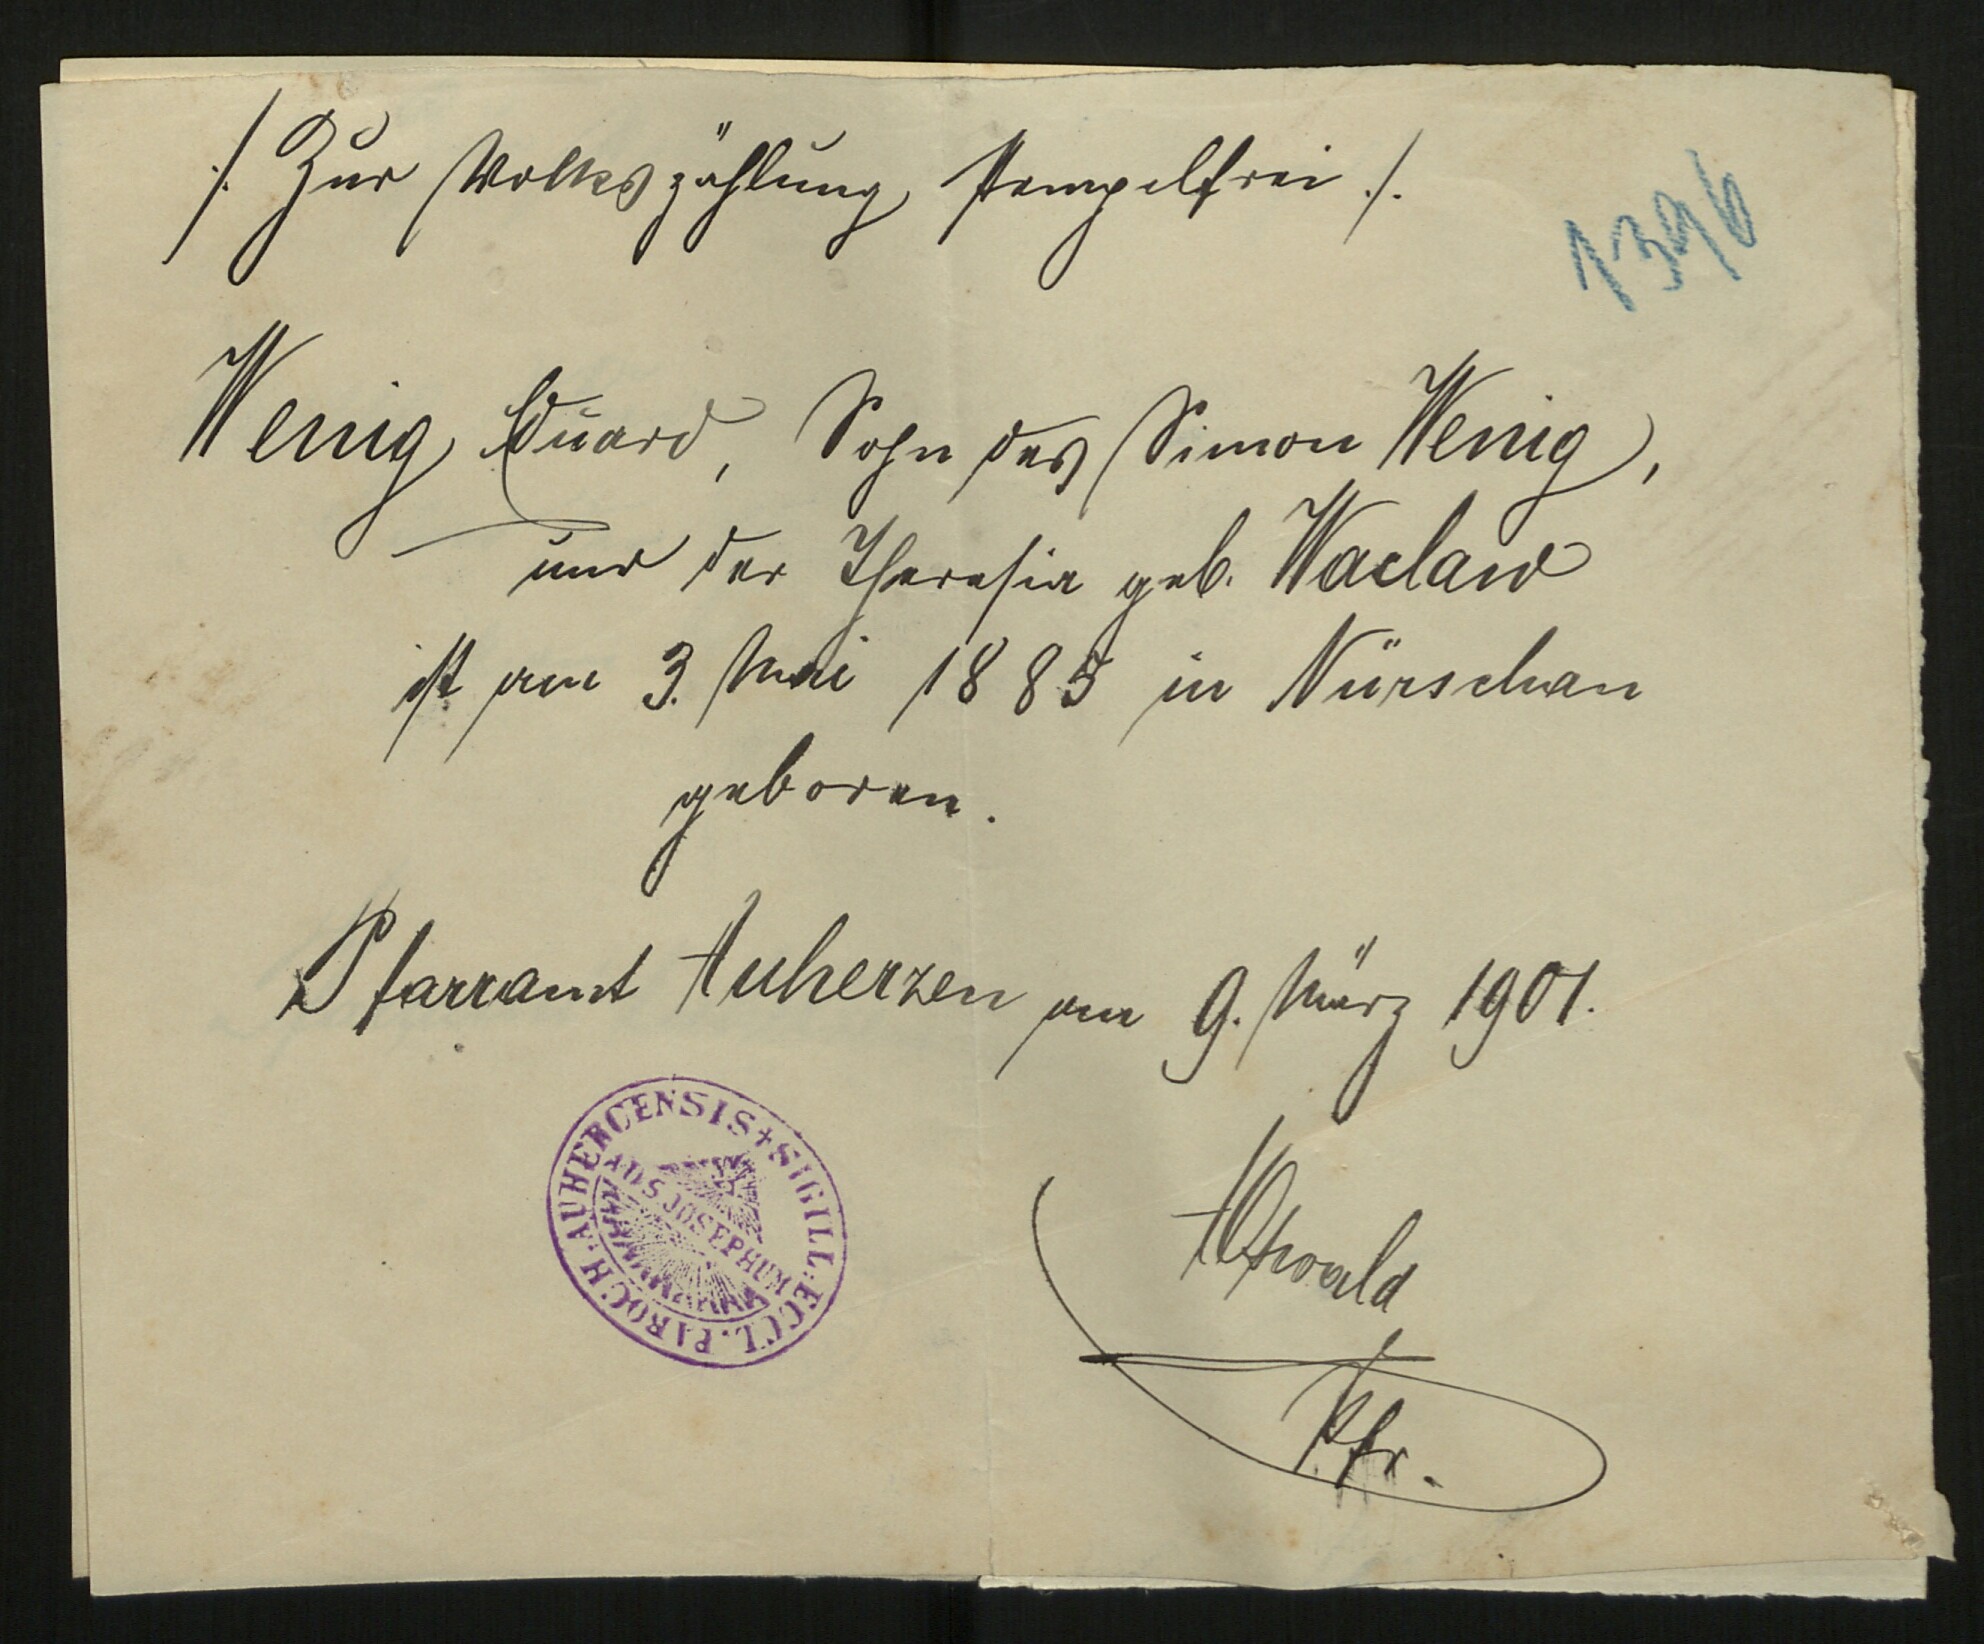 /. Zur Volkszählung stempelfrei ./.
1396
Wenig Eduard, Sohn des Simon Wenig,
und der Theresia geb. Waclaw
ist am 3. Mai 1885 in Nürschan
geboren.
Pfarramt Auherzen am 9. März 1901.
SIGILL: ECCL. PAROCH. AUHERCENSIS +
AD S. JOSEPHUM
Pfr.